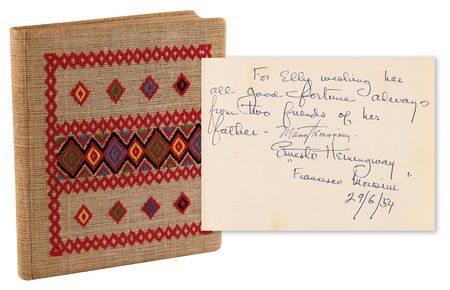 For Elly wishing her
all good fortune always
from two friends of her
father - Mary Hemingway -
Ernesto Hemingway
"Francesco Morosini"
29/6/54